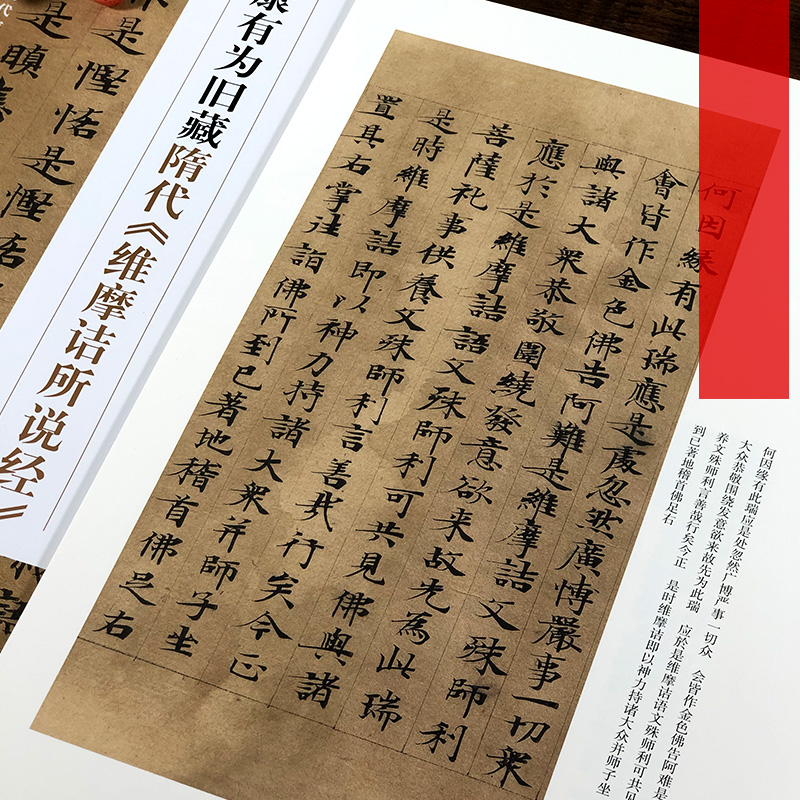 何因緣有此瑞應是處忽然廣博嚴事一切衆
會皆作金色佛告阿難是維摩詰文殊師利
與諸大衆恭敬圍繞發意欲來故先為此瑞
應於是維摩詰語文殊師利可共見佛與諸
菩薩礼事供養文殊師利言善哉行矣今正
是時維摩詰即以神力持諸大衆并師子坐
置其右掌往詣佛所到已著地稽首佛足右
何因缘有此瑞应是处忽然广博严事一切众 会皆作金色佛告阿难是
大众恭敬围绕发意欲来故先为此瑞 应於是维摩诘语文殊师利可共见
养文殊师利言善哉行矣今正 是时维摩诘即以神力持诸大众并师子坐
到已著地稽首佛足右
康有为旧藏隋代《维摩诘所说经》
是慳悋是慳悋
是瞋
代